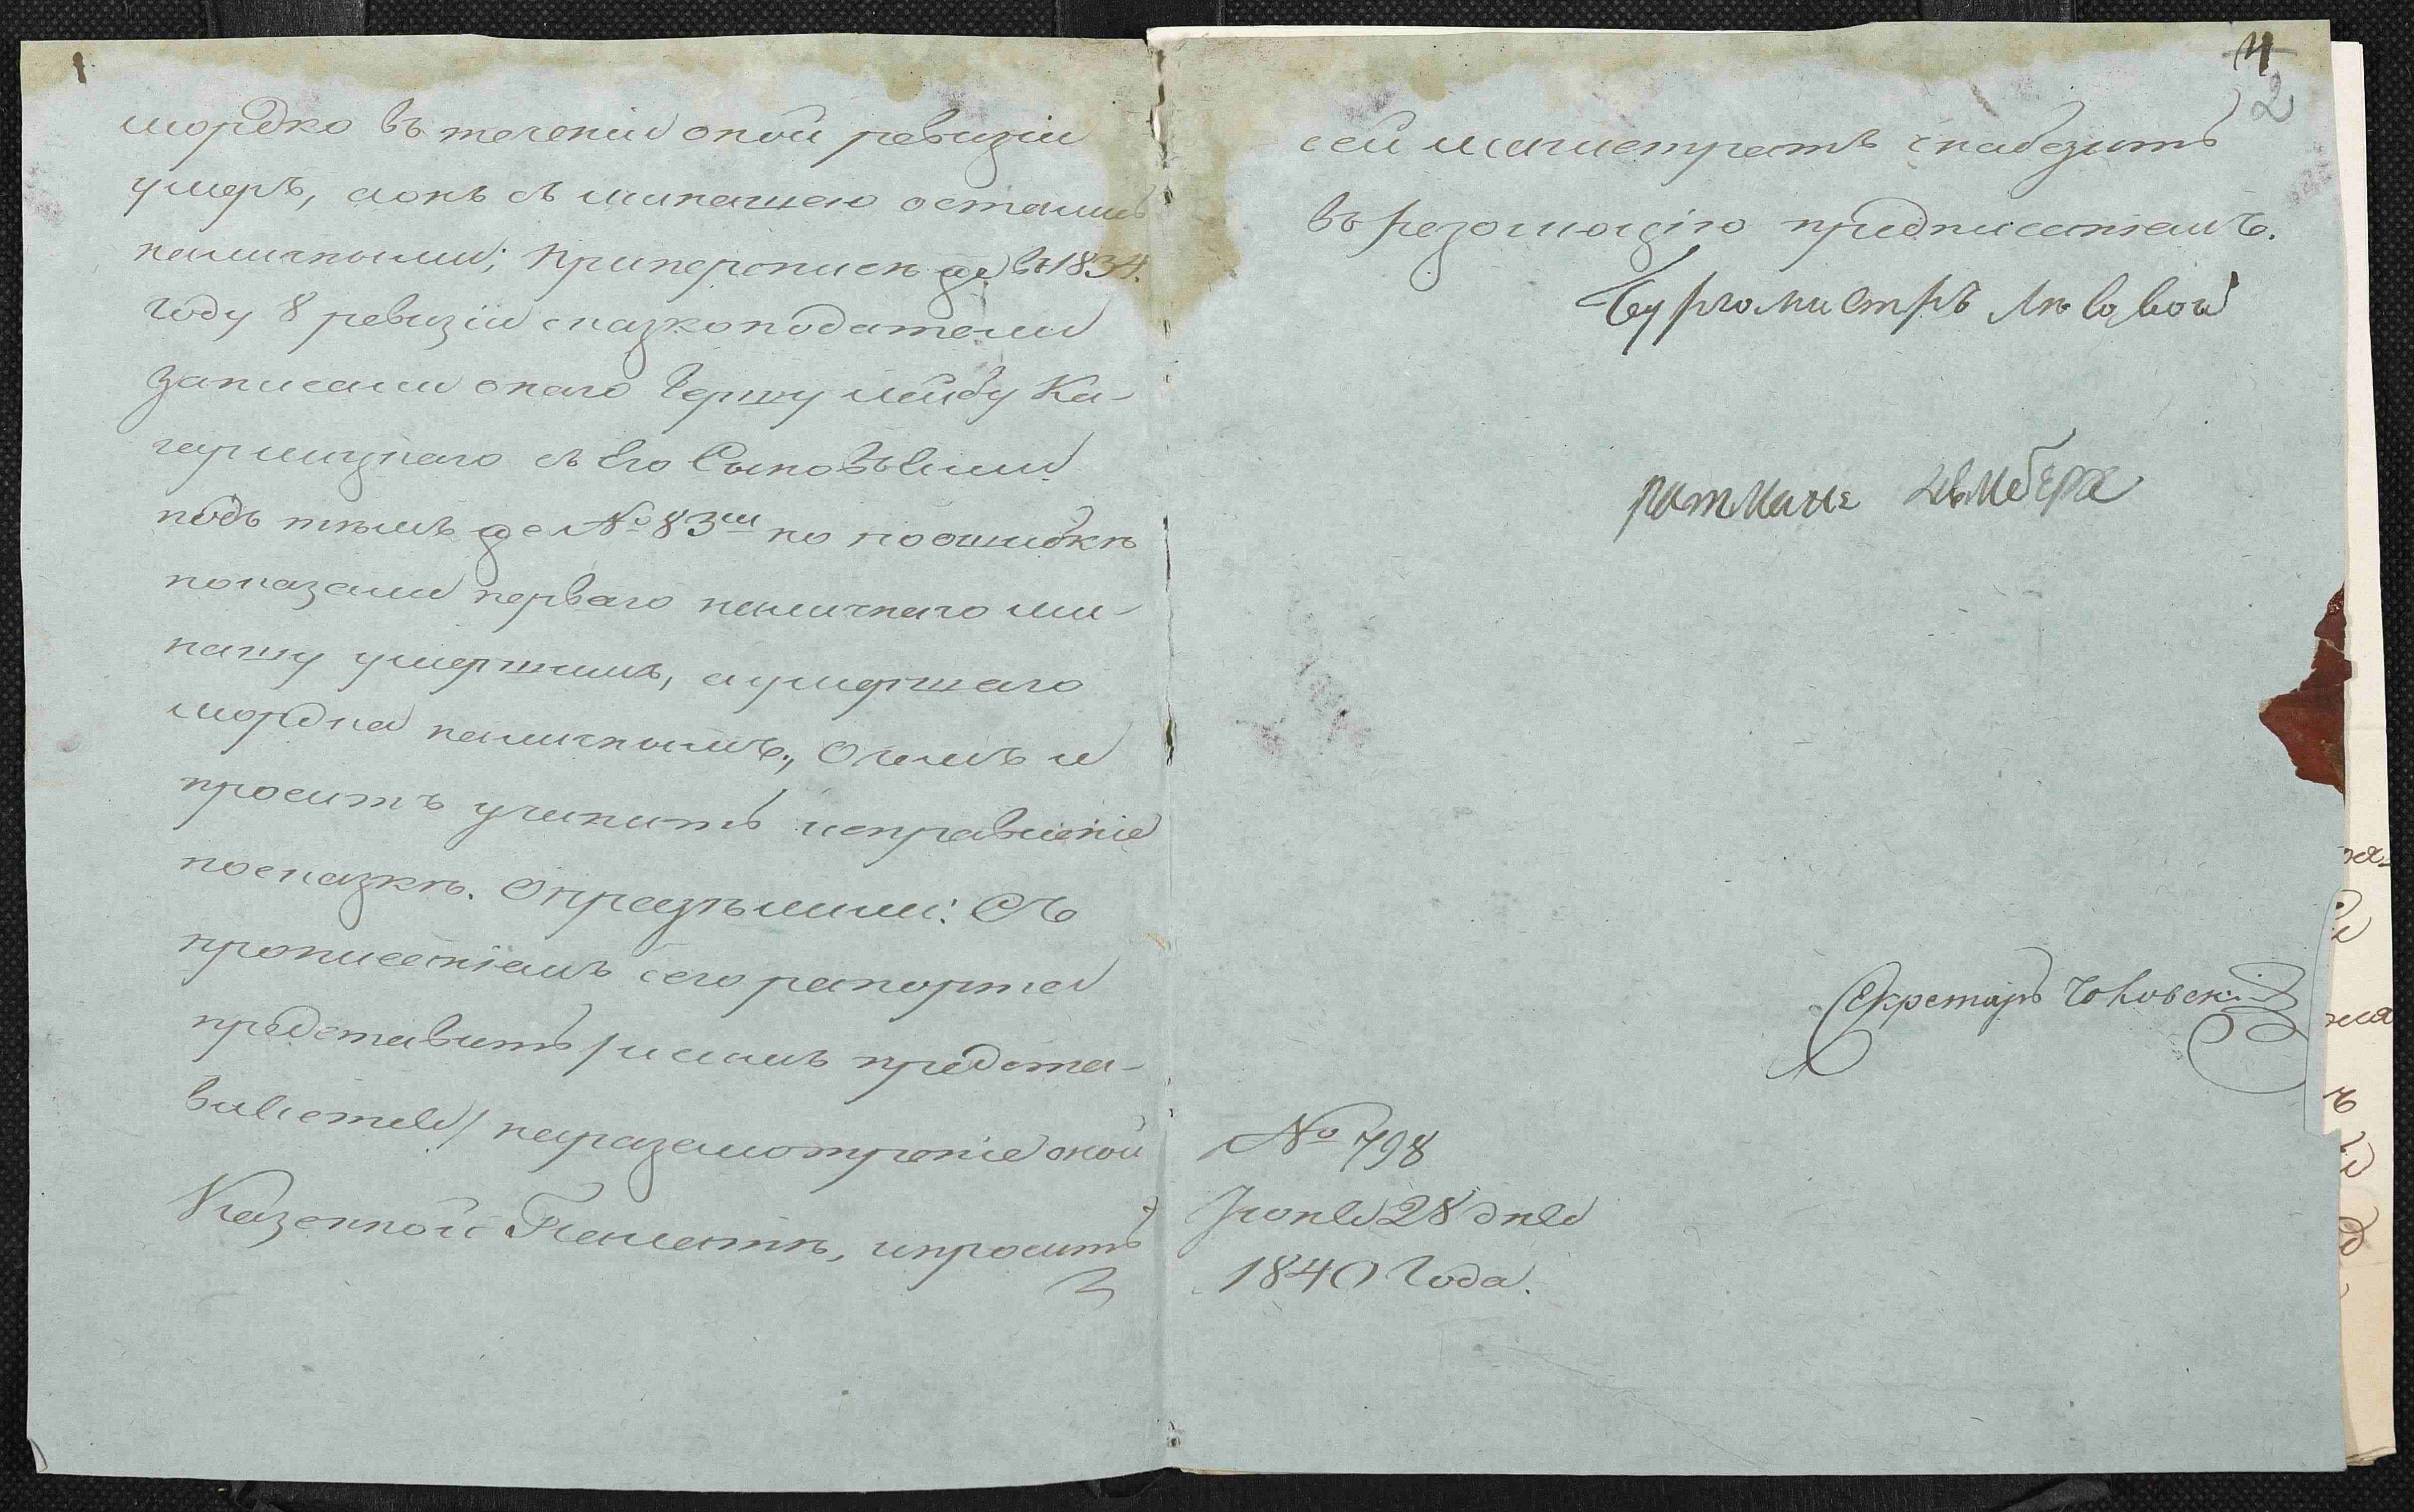 мордко въ теченіи оной ревизіи
умеръ, а онъ съ минашею остались
наличными; При переписи же въ 1834.
году 8 ревизіи сказкоподатели
записали онаго Гершу Лейбу Ка-
гарлицкаго съ Его Сыновьями
подъ тѣмъ же № 83мъ но по ошибкѣ
показали перваго наличнаго ми-
нашу умершимъ, а умершаго
мордка наличнымъ, О чемъ и
проситъ учинить исправленіе
по сказкѣ. Опредѣлили: Съ
прописаніемъ сего рапортъ
представить / и симъ предста-
вляется / на разсмотреніе оной
Казенной Палатѣ, и просить
4
2
сей магистратъ снабдить
въ резолюцію предписаніемъ.
Бургомистръ
ратманъ
Секретарь
№ 798
Іюня 28 дня
1840 Года.